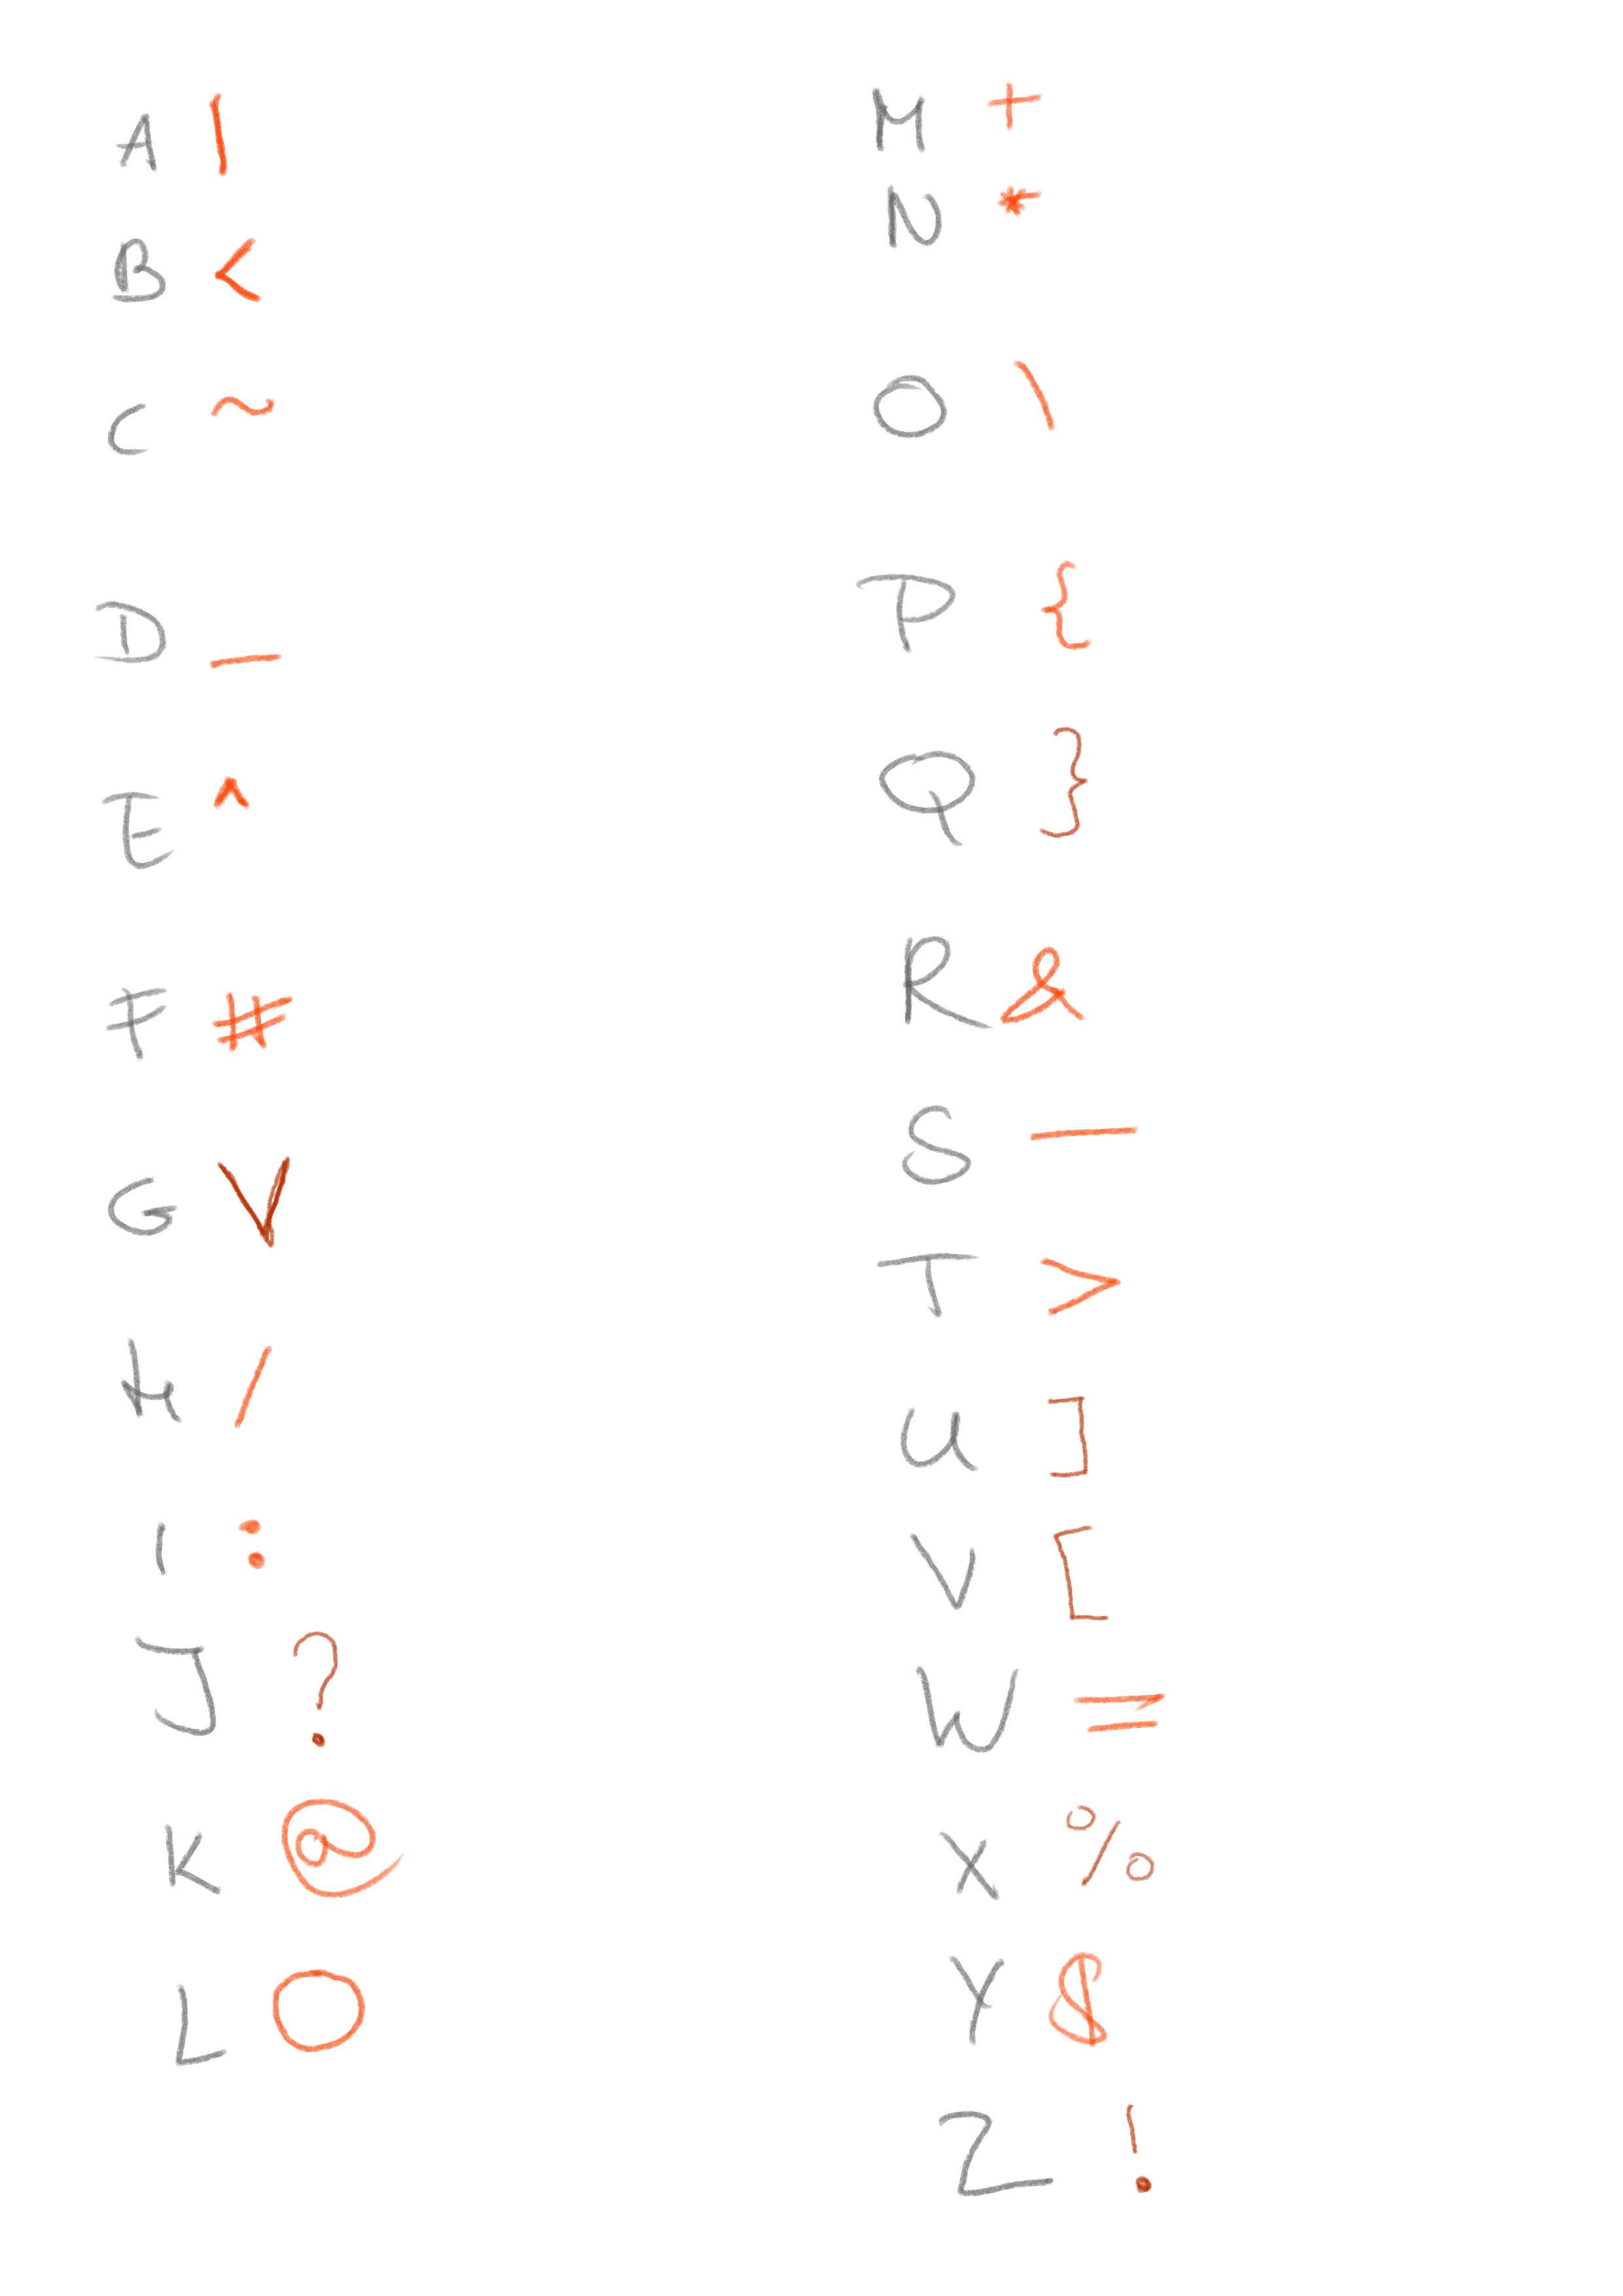 A |
B <
C ~
D _
E ^
F #
G V
H /
I :
J ?
K @
L O
M +
N *
O \
P {
Q }
R &
S —
T >
U ]
V [
W =
X %
Y $
Z !